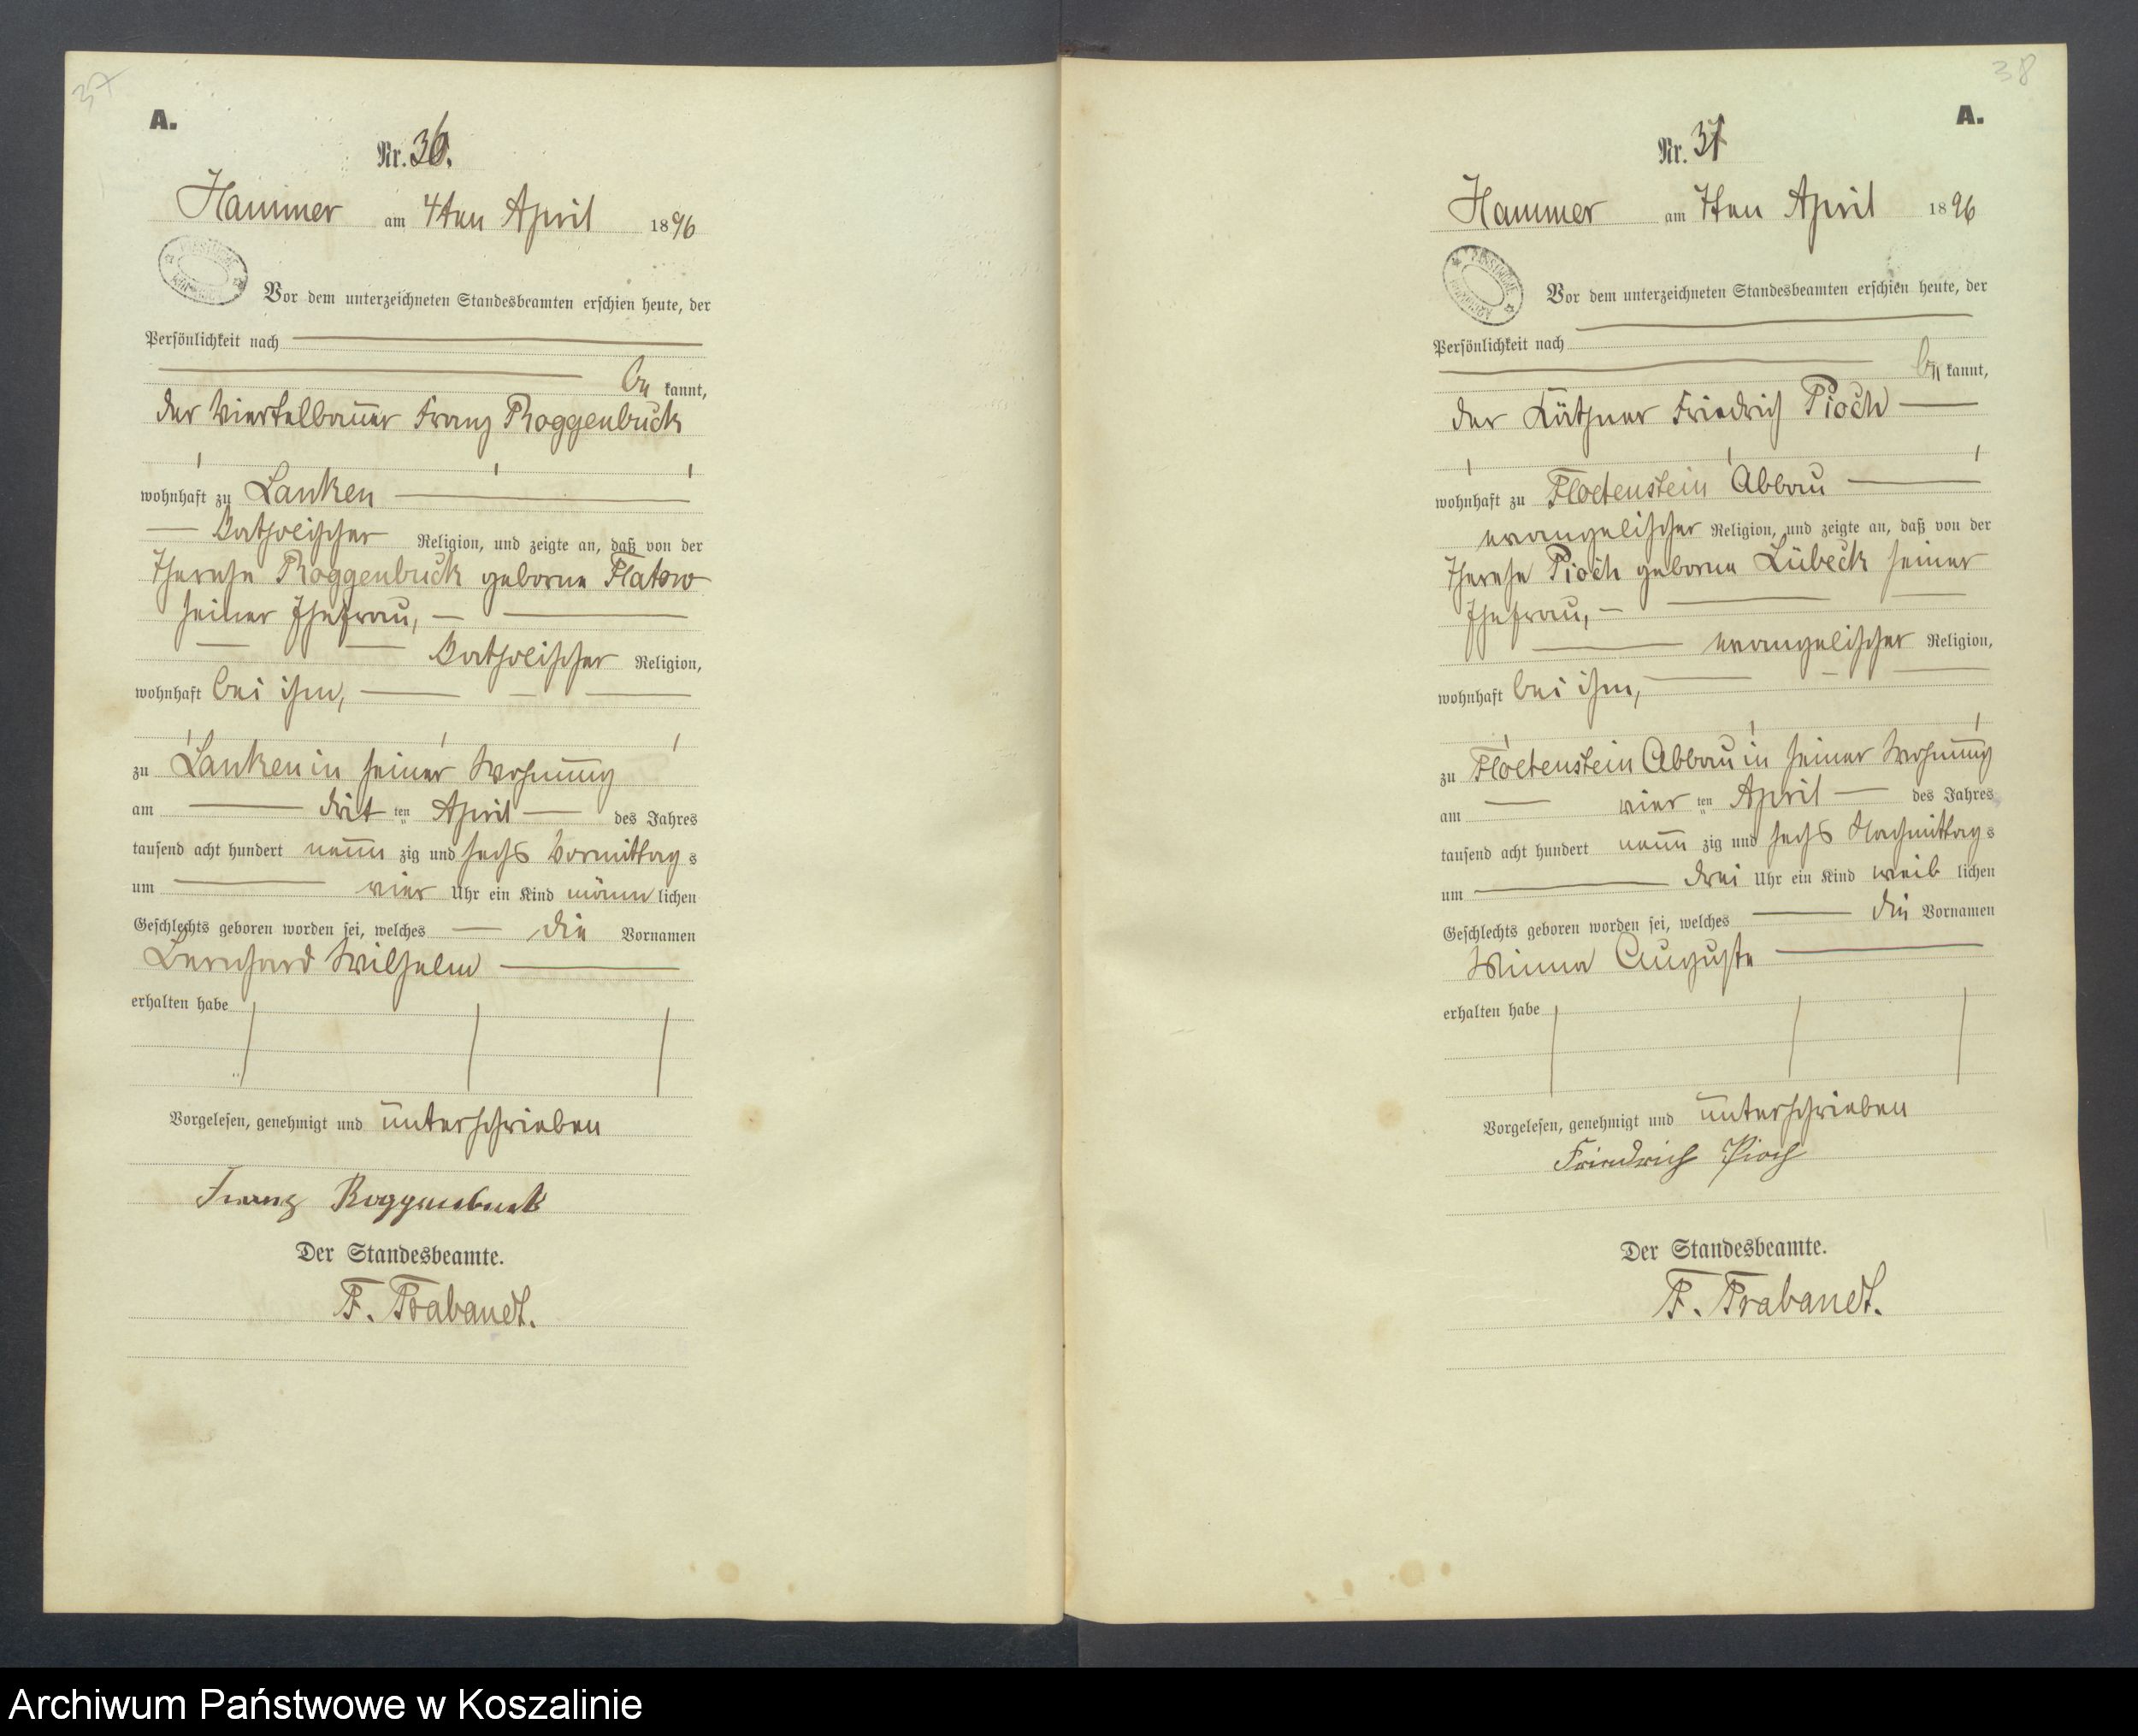 37
A.
Nr. 36.
Hammer am 4ten April 1896
Vor dem unterzeichneten Standesbeamten erschien heute, der
Persönlichkeit nach
be kannt,
der Viertelbauer Franz Roggenbuck
wohnhaft zu Lanken
Katholischer Religion, und zeigte an, daß von der
Therese Roggenbuck geborne Flatow
seiner Ehefrau,
Katholischer Religion,
wohnhaft bei ihm,
zu Lanken in seiner Wohnung
am drit ten April des Jahres
tausend acht hundert neun zig und sechs Vormittag s
um vier Uhr ein Kind männ lichen
Geschlechts geboren worden sei, welches die Vornamen
Bernhard Wilhelm
erhalten habe
Vorgelesen, genehmigt und unterschrieben
Franz Roggenbuck
Der Standesbeamte.
F. Trabandt.
38
A.
Nr. 37
Hammer am 7ten April 1896
Vor dem unterzeichneten Standesbeamten erschien heute, der
Persönlichkeit nach
be kannt,
der Käthner Friedrich Pioch
wohnhaft zu Floetenstein Abbau
evangelischer Religion, und zeigte an, daß von der
Therese Pioch geborne Lübeck seiner
Ehefrau,
evangelischer Religion,
wohnhaft bei ihm,
zu Floetenstein Abbau in seiner Wohnung
am vier ten April des Jahres
tausend acht hundert neun zig und sechs Nachmittag s
um drei Uhr ein Kind weib lichen
Geschlechts geboren worden sei, welches die Vornamen
Minna Auguste
erhalten habe
Vorgelesen, genehmigt und unterschrieben
Friedrich Pioch
Der Standesbeamte.
F. Trabandt.
Archiwum Państwowe w Koszalinie